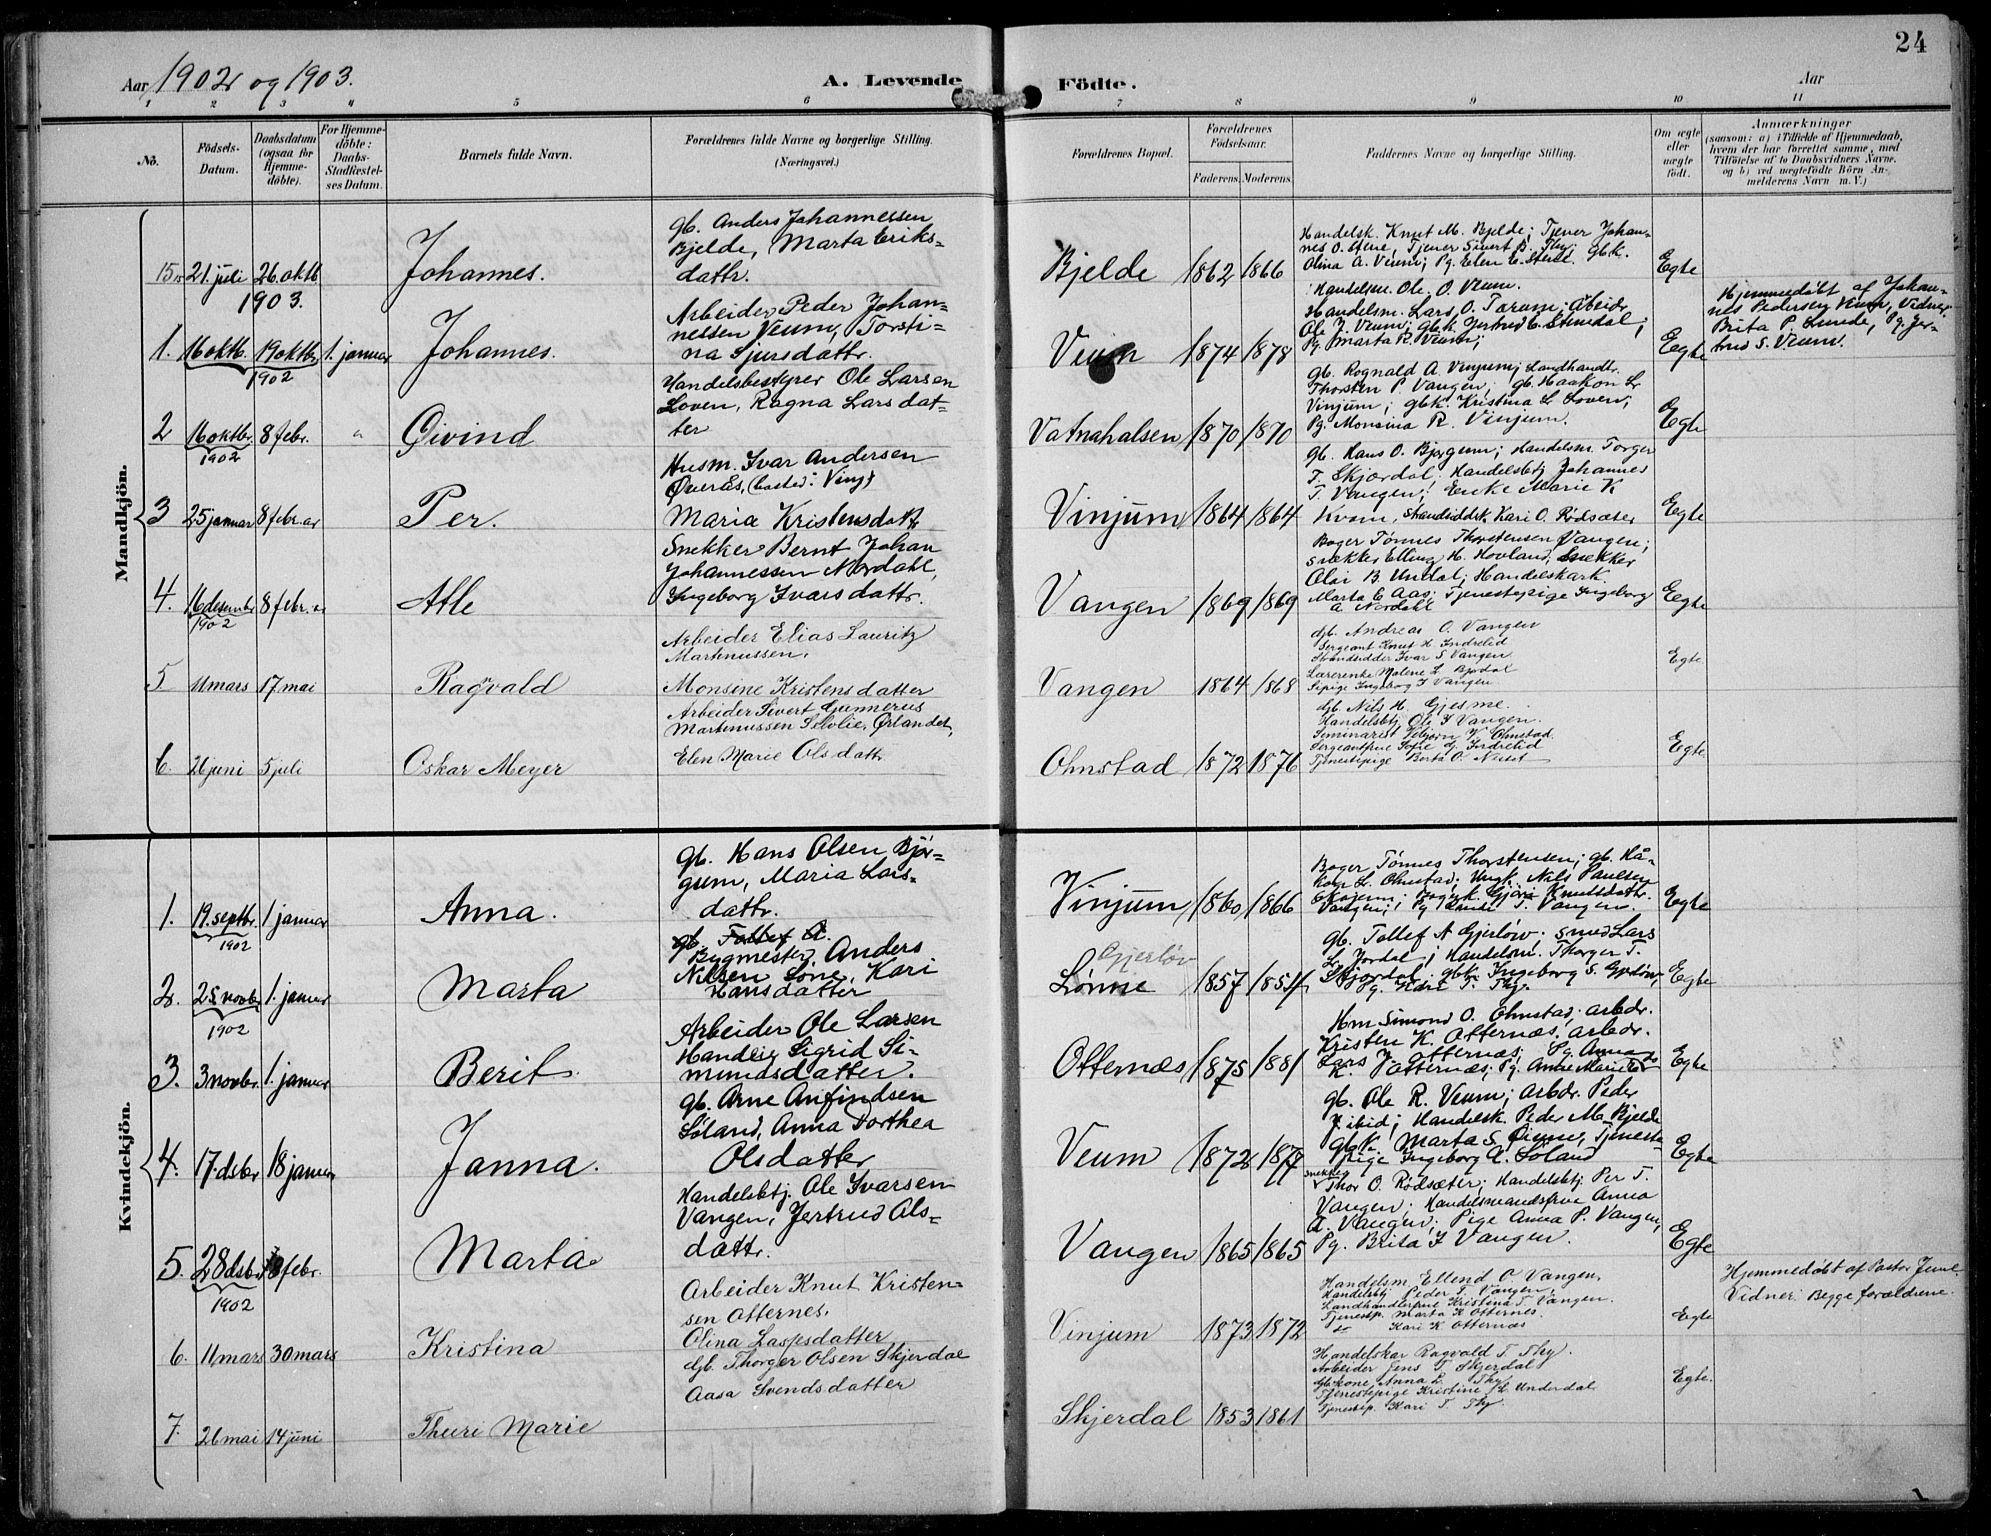 Aar 1902 og 1903.
A. Levende Födte.
Aar
24
1 2 3 4 5 6 7 8 9 10 11
No.
Födsels-Datum.
Daabsdatum (ogsaa for Hjemme-döbte).
For Hjemme-döbte: Daabs-Stadfestel-ses Datum.
Barnets fulde Navn.
Forældrenes fulde Navne og borgerlige Stilling. (Næringsvei.)
Forældrenes Bopæl.
Forældrenes Födselsaar.
Faderens. Moderens.
Faddernes Navne og borgerlige Stilling.
Om ægte eller uægte födt.
Anmærkninger
(saasom: a) i Tilfælde af Hjemmedaab,
hvem der har forrettet samme, med
Tilföielse af to Daabsvidners Navne.
og b) ved uægtefödte Börn An-
melderens Navn m. V.)
Mandkjön.
15 21 juli 26 oktb Johannes.
gb. Anders Johannessen
Bjelde, Marta Eriks-
dattr.
Bjelde 1862 1866
Handelsk. Knut M. Bjelde; Tjener Johan-
nes O. Tjener Sivert B. Thy; gbk.
Olina A. Veum; Pg. Elen E.
Egte
1903.
1. 16 oktb. 19 oktbr 1. januar Johannes.
1902
Arbeider Peder Johan-
nessen Veum, Torsti-
na Sjursdattr.
Veum 1874 1878
Handelsm. Ole O. Veum.
Handelsm. Lars O. Arbeidr
Ole J. Veum; gbk. Jertrud E. Stendal;
Pg. Marta R. Veum;
Egte
Hjemmedøbt af Johan-
nes Pedersen Veum, Vidner
Brita P. Lunde, Pg. Jer-
trud S. Veum.
2 16 oktbr. 8 febr. " Øivind
1902
Handelsbestyrer Ole Larsen
Loven, Ragna Lars dat-
ter
Vatnahalsen 1870 1870
gb. Rognald A. Vinjum; Landhandlr.
Thorsten P. Vangen; gb. Haakon L
Vinjum; gbk. Kristina L. Loven;
Pg. Monsina R. Vinjum.
Egte
3 25 januar 8 febr. Per.
Husm. Ivar Andersen
Øveraas, (bosted: Vinj)
Maria Kristensdattr
Vinjum 1864 1864
gb. Hans O. Bjørgum; Handelsm. Torger
T. Skjerdal; Handelsbtj Johannes
T. Vangen; Enke Marie K
Kvam, Kari O. Rødsæter
Egte
4. 16 desembr 8 febr. Atle
1902
Snekker Bernt Johan
Johannessen Nordahl,
Ingeborg Ivarsdattr.
Vangen 1869 1869
Bager Tønnes Thorstensen Vangen;
Snekker Elling H. Hovland, Snekker
Olai B. Undal; Handelskark.
Marta E Aas; Tjenestepige Ingeborg
A Nordahl
Egte
5 11 mars 17 mai Ragnvald
Arbeider Elias Lauritz
Martinussen,
Monsine Kristensdatter
Vangen 1864 1868
gb. Andreas O. Vangen
Sergeant Knut H Indrelid
Strandsidder Ivar S Vangen
Lærerenke Malene L
Ingebrog I Vangen
Egte
6. 21 juni 5 juli Oskar Meyer
Arbeider Sivert Gunnerus
Martinussen Selvlie, Ørlandet,
Elen Marie Olsdattr
Ohnstad 1872 1876
gb. Nils H. Gjesme.
Handelsbtj. Ole I Vangen.
Seminarist V. Ohnstad
Sergeantfrue Sofie G. Indrelid
Tjenestepige Berta O.
Egte
Kvindekjön.
1. 19. septbr. 1. januar Anna.
1902
gb. Hans Olsen Bjør-
gum, Maria Lars-
dattr.
Vinjum 1860 1866
Bager Tønnes Thorstensen; gb. Hå-
kon L. Ohnstad; Ungk. Nils Paulsen
Knutsdattr.
Vangen; T. Vangen.
Egte
2. 25 novbr 1. januar Marta
1902
gb. Tollef A.
Bygmester Anders
Nilsen Lone, Kari
Hansdatter
Gjerløv
Lønne 1857 1854
gb. Tollef A Gjerløw; smed Lars
L. Jordal; Handelsm. Thorger T.
Skjerdal; gbk. Ingeborg S.
Pg. Kari T. Thy.
Egte
3. 3 novbr. 1. januar Berit.
Arbeider Ole Larsen
Sigrid Si-
mundsdatter.
Otternæs 1875 1881
Hm Simond O. Ohnstad; arbdr.
Kristen K. Otternæs, arbdr.
Lars J. Otternæs; Pg. Anna
K. Otternæs; Pg.
Egte
4. 17. desbr 18 januar Janna.
gb. Arne Anfindsen
Søland, Anna Dorthea
Olsdatter
Veum 1872 1877
gb. Ole R. Veum; Arbdr. Peder
J. ibid; Handelsk. Peder M. Bjelde
gbk. Marta S. Tjenest-
pige Ingeborg A. Søland
Egte
5. 28 dsbr 8 febr. Marta
1902
Handelsbtj. Ole Ivarsen
Vangen, Jertrud Ols-
dattr.
Vangen 1865 1865
Snekker
Thor O. Rødsæter; Handelsbtj Per T.
Vangen; Handelsmandsfrue Anna
A. Vangen; Pige Anna P. Vangen,
Pg. Brita I Vangen.
Egte
6. 11 mars 30 mars Kristina
Arbeider Knut Kristen-
sen Otternes,
Olina Laspsdatter
Vinjum 1873 1872
Handelsm. Ellend O Vangen,
Handelsbtj Peder T. Vangen,
Landhandlerfrue Kristina T. Vangen.
Tjenestep. Marta K Otternes
do Kari K Otternæs
Egte
Hjemmedøbt af Pastor Juul.
Vidner: Begge forældrene.
7. 26 mai 14 juni Thuri Marie
gb. Thorger Olsen Skjerdal
Aasa Svendsdatter
Skjerdal 1853 1861
Handelskar Ragvald T Thy.
Arbeider Jens T. Skjerdal
Gbkone Anna L. Thy
Tjenestepige Kristine L. Underdal
Tjenestep. Kari T Thy.
Egte.